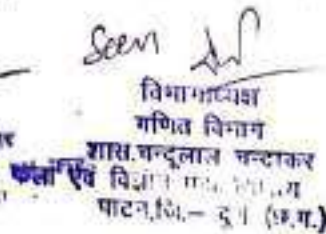 Seen
विभागाध्यक्ष
गणित विभाग
शास.चन्दूलाल चन्दाकर
कला एवं विज्ञान
पाटन,जि.– दुर्ग (छ.ग.)